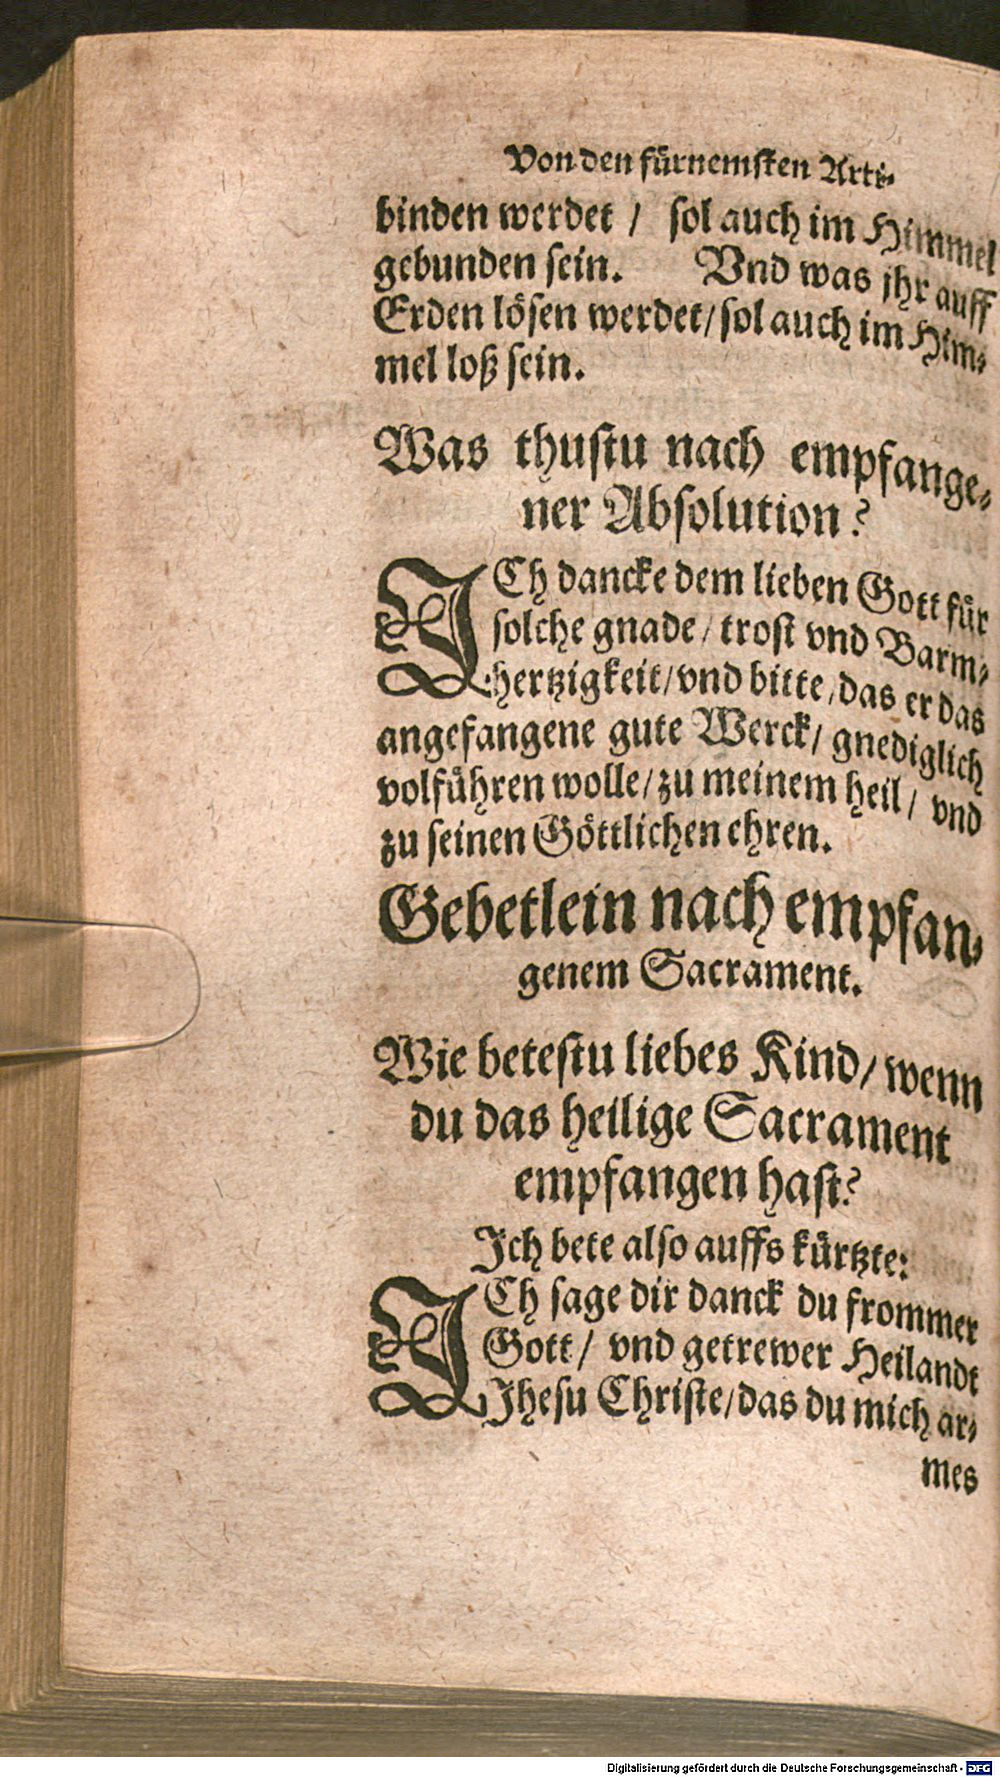 Von den fürnemsten Arti-
binden werdet / sol auch im Himmel
gebunden sein. Vnd was jhr auff
Erden lösen werdet / sol auch im Him-
mel loß sein.
Was thustu nach empfange-
ner Absolution?
ICh dancke dem lieben Gott für
solche gnade / trost vnd Barm-
hertzigkeit / vnd bitte / das er das
angefangene gute Werck / gnediglich
volführen wolle / zu meinem heil / vnd
zu seinen Göttlichen ehren.
Gebetlein nach empfan-
genem Sacrament.
Wie betestu liebes Kind / wenn
du das heilige Sacrament
empfangen hast?
Ich bete also auffs kürtzte:
ICh sage dir danck du frommer
Gott / vnd getrewer Heilandt
Jhesu Christe / das du mich ar-
mes
Digitalisierung gefördert durch die Deutsche Forschungsgemeinschaft - DFG